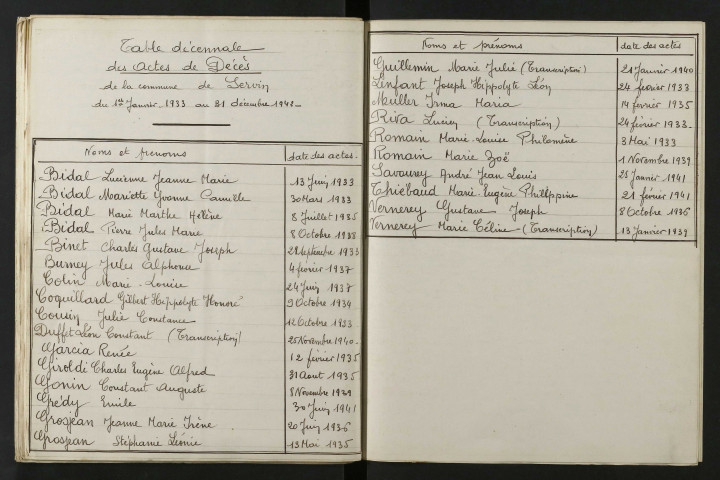 Table décennale
des Actes de Décès
de la commune de Servin
du 1er Janvier 1933 au 31 décembre 1942
Noms et prénoms date des actes
Bidal Lucienne Jeanne Marie 13 Juin 1933
Bidal Mariette Yvonne Camille 30 Mars 1933
Bidal Marie Marthe Hélène 8 Juillet 1935
Bidal Pierre Jules Marie 8 Octobre 1938
Binet Charles Gustave Joseph 28 Septembre 1933
Burney Jules Alphonse 4 février 1937
Colin Marie-Louise 24 Juin 1937
Coquillard Gilbert Hippolyte Honoré 9 Octobre 1934
Cousin Julie Constance 12 Octobre 1933
Duffet Léon Constant (Transcription) 25 Novembre 1940
Garcia Renée 12 février 1935
Giroldi Charles Eugène Alfred 31 Aout 1935
Gonin Constant Auguste 8 Novembre 1939
Grédy Emile 30 Juin 1941
Grosjean Jeanne Marie Irène 20 Juin 1936
Grosjean Stéphanie Léonie 13 Mai 1935
Noms et prénoms date des actes
Guillemin Marie Julie (Transcription) 21 Janvier 1940
Lenfant Joseph Hippolyte Léon 24 février 1933
Muller Irma Maria 14 février 1935
Riva Lucien (Transcription) 24 février 1933
Romain Marie-Louise Philomène 3 Mai 1933
Romain Marie Zoë 1 Novembre 1939
Savourey André Jean Louis 25 Janvier 1941
Thiebaud Marie Eugène Philippine 21 février 1941
Vernerey Gustave Joseph 8 Octobre 1936
Vernerey Marie Céline (Transcription) 13 Janvier 1939